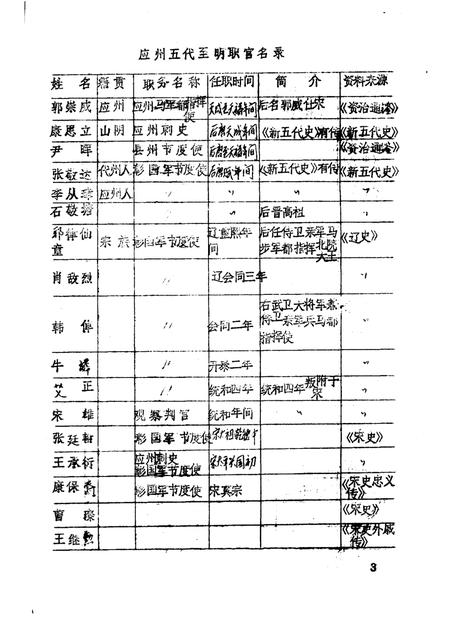 应州五代至明职官名录
姓名 籍贯 职务名称 任职时间 简介 资料来源
郭崇威 应州 应州 指挥使 后名郭威仕宋 《资治通鉴》
康思立 山阴 应州刺史 后唐天成年间 《新五代史》有传 《新五代史》
尹晖 县州节度使 《资治通鉴》
张敬达 代州人 彰国军节度使 年间 《新五代史》有传 《新五代史》
李从璋 应州人 〃 〃 〃
石敬瑭 〃 〃 后晋高祖 〃
耶律仙童 宗族 彰国军节度使 辽重熙年间 后任侍卫亲军马步军都指挥 北院大王 《辽史》
肖敌烈 辽会同三年
韩倬 〃 会同二年 右武卫大将军 侍卫亲军兵马都指挥使 〃
牛璘 〃 开泰二年 〃
艾正 〃 统和四年 统和四年叛附于宋 〃
宋雄 观察判官 统和年间 〃 〃
张廷翰 彰国军节度使 《宋史》
王承衍 应州刺史 彰国军节度使 宋太平兴国初 〃
康保裔 彰国军节度使 宋真宗 《宋史忠义传》
曹璨 《宋史》
王继勋 《宋史外戚传》
3